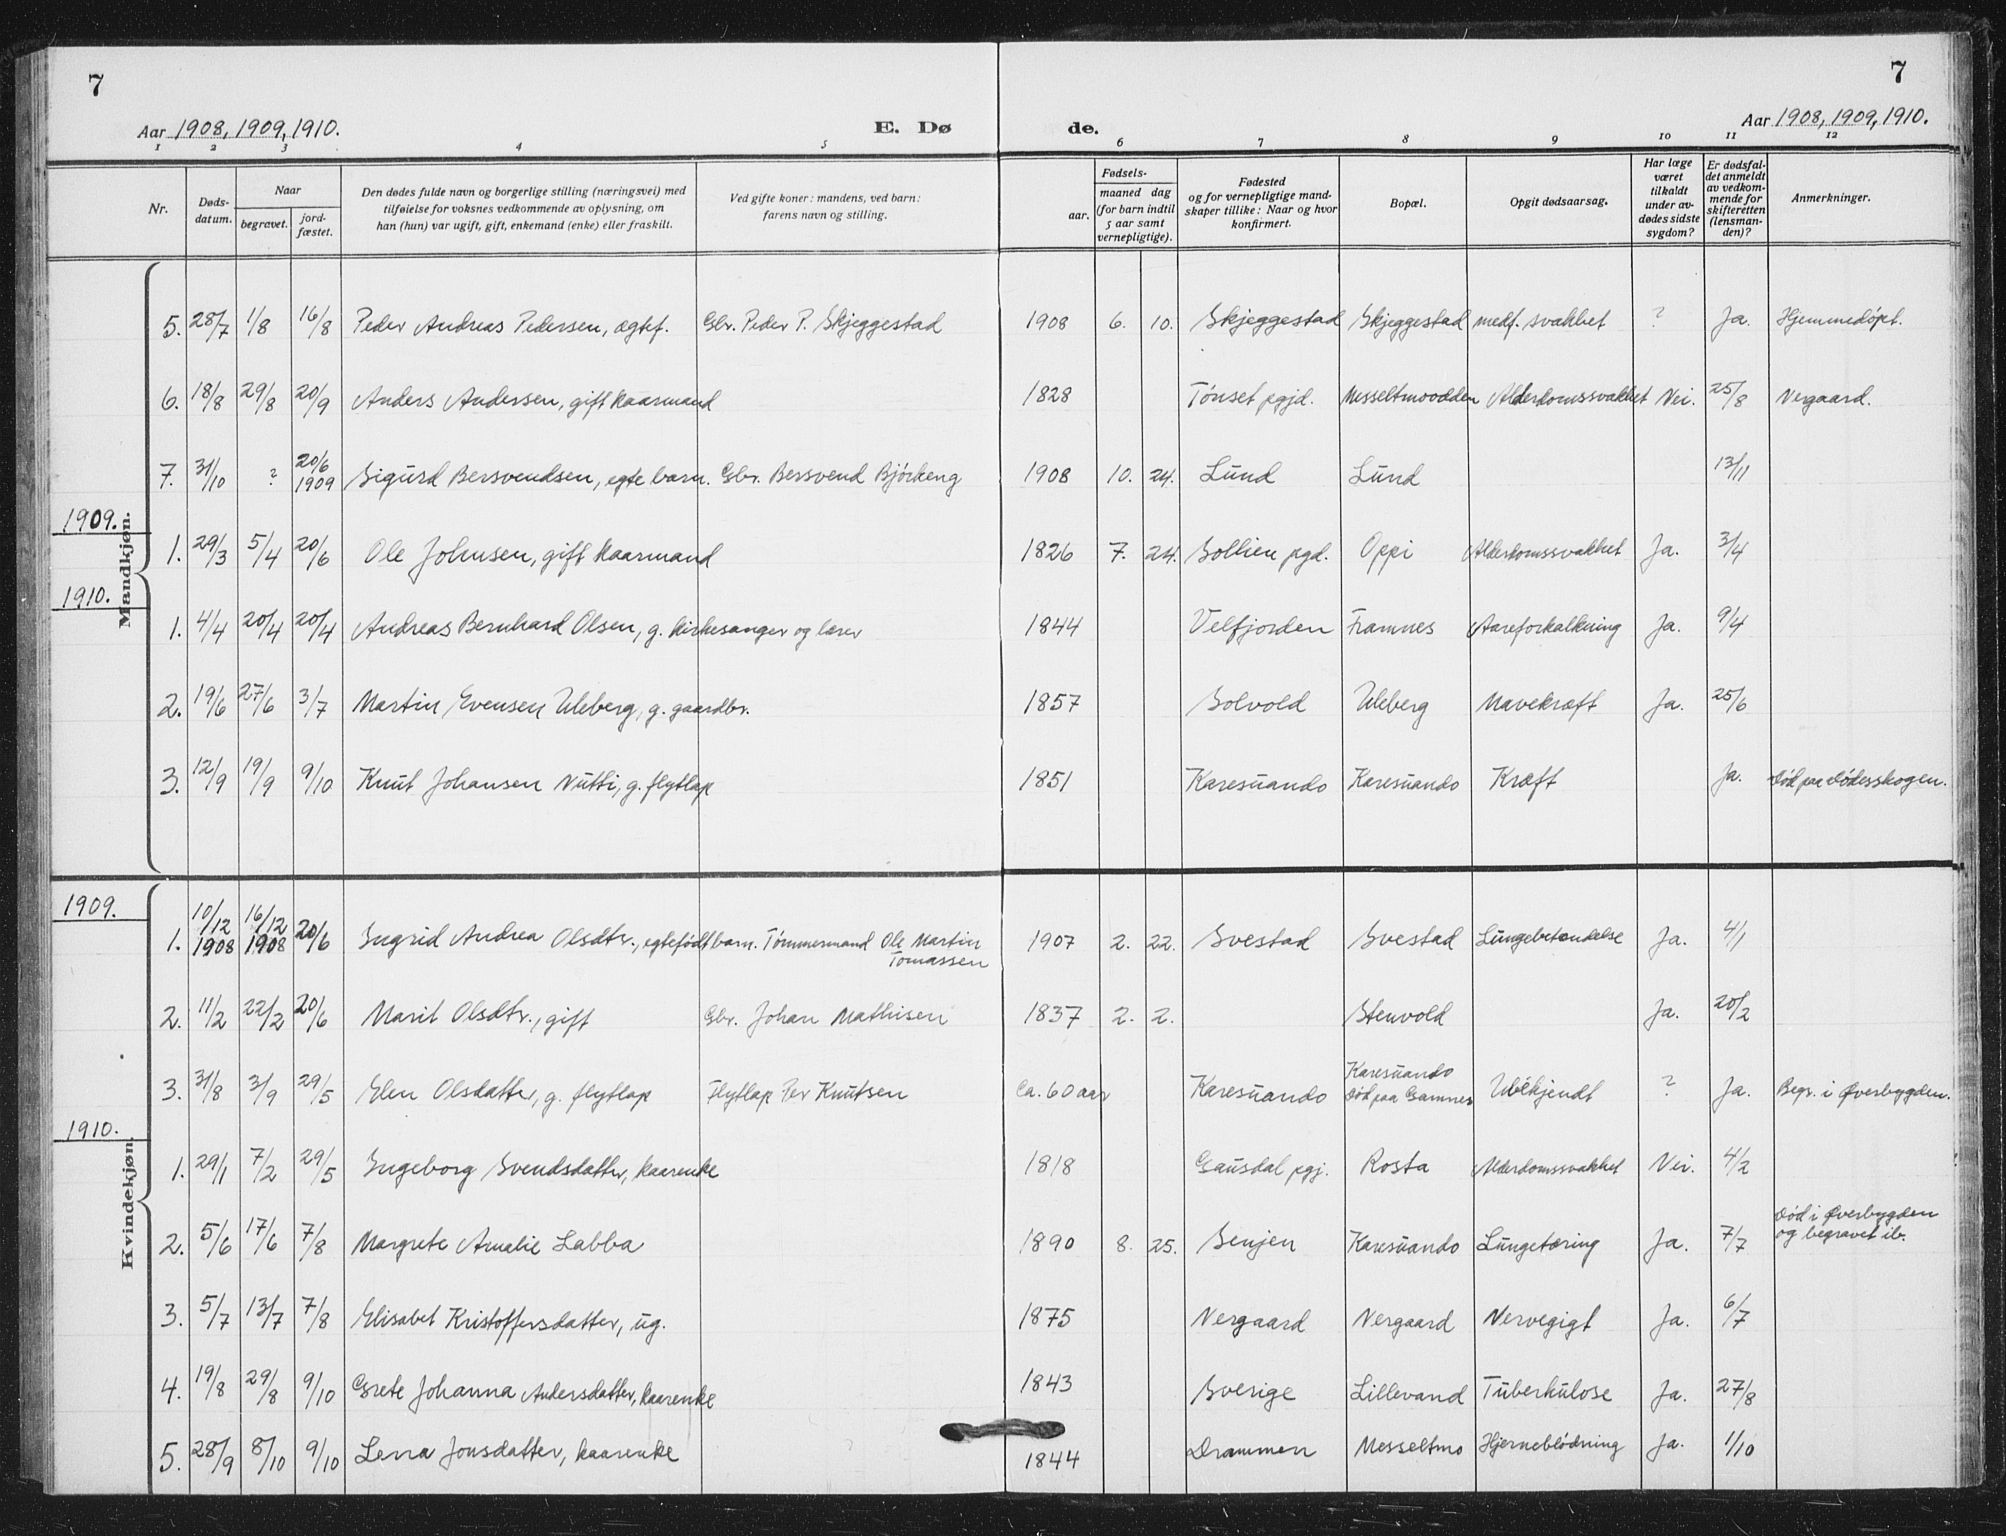 7
7
Aar 1908, 1909, 1910.
E. Dø
de.
Aar 1908, 1909, 1910.
1 2 3 4 5 6 7 8 9 10 11 12
Nr.
Døds-
datum.
Naar
begravet.
jord-
fæstet.
Den dødes fulde navn og borgerlige stilling (næringsvei) med
tilføielse for voksnes vedkommende av oplysning, om
han (hun) var ugift, gift, enkemand (enke) eller fraskilt.
Ved gifte koner: mandens, ved barn:
farens navn og stilling.
Fødsels-
aar.
maaned dag
(for barn indtil
5 aar samt
vernepligtige).
Fødested
og for vernepligtige mand-
skaper tillike: Naar og hvor
konfirmert.
Bopæl.
Opgit dødsaarsag.
Har læge
været
tilkaldt
under av-
dødes sidste
sygdom?
Er dødsfal-
det anmeldt
av vedkom-
mende for
skifteretten
(lensman-
den)?
Anmerkninger.
Mandkjøn.
5. 28/7 1/8 16/8 Peder Andreas Pedersen, ægtef. Gbr. Peder P. Skjeggestad 1908 6. 10. Skjeggestad Skjeggestad medf. svakhet ? Ja. Hjemmedøpt.
6. 18/8 29/8 20/9 Anders Andersen, gift kaarmand 1828 Tønset pgjd. Messeltmoodden Alderdomssvakhet Nei. 25/8 Nergaard.
7. 31/10 ? 20/6 1909 Sigurd Bersvendsen, egte barn. Gbr. Bersvend Bjørkeng 1908 10. 24. Lund Lund 13/11
1909.
1. 29/3 5/4 20/6 Ole Johnsen, gift kaarmand 1826 7. 24. Sollien pgd. Oppi Alderdomssvakhet Ja. 3/4
1910.
1. 4/4 20/4 20/4 Andreas Bernhard Olsen, g. kirkesanger og lærer 1844 Velfjorden Framnes Aareforkalkning Ja. 9/4
2. 19/6 27/6 3/7 Martin Evensen Uleberg, g. gaardbr. 1857 Solvold Uleberg Mavekræft Ja. 25/6
3. 12/9 19/9 9/10 Knut Johansen Nutti, g. flytlap 1851 Karesuando Karesuando Kræft Ja. Død paa Dødesskogen.
Kvindekjøn.
1909.
1. 10/12 1908 16/12 1908 20/6 Ingrid Andrea Olsdtr., egtefødt barn. Tømmermand Ole Martin
Tomassen 1907 2. 22. Svestad Svestad Lungebetændelse Ja. 4/1
2. 11/2 22/2 20/6 Marit Olsdtr., gift Gbr. Johan Mathisen 1837 2. 2. Stenvold Ja. 20/2
3. 31/8 3/9 29/5 Elen Olsdatter, g. flytlap Flytlap Per Knutsen Ca. 60 aar Karesuando Karesuando
Død paa Gamnes Ubekjendt ? Ja. Begr. i Øverbygden.
1910.
1. 29/1 7/2 29/5 Ingeborg Svendsdatter, kaarenke 1818 Gausdal pgj. Rosta Alderdomssvakhet Nei. 4/2
2. 5/6 17/6 7/8 Margrete Amalie Labba 1890 8. 25. Senjen Karesuando Lungetæring Ja. 7/7 Død i Øverbygden
og begravet ib.
3. 5/7 13/7 7/8 Elisabet Kristoffersdatter, ug. 1875 Nergaard Nergaard Nervegigt Ja. 6/7
4. 19/8 29/8 9/10 Grete Johanna Andersdatter, kaarenke 1843 Sverige Lillevand Tuberkulose Ja. 27/8
5. 28/9 8/10 9/10 Lena Jonsdatter, kaarenke 1844 Drammen Messeltmo Hjerneblødning Ja. 1/10